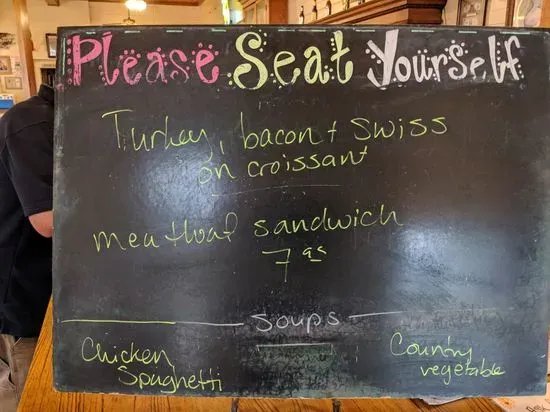 Please Seat Yourself
Turkey, bacon + swiss
on croissant
meatloaf sandwich
7 95
soups
Chicken Spaghetti
Country vegetable